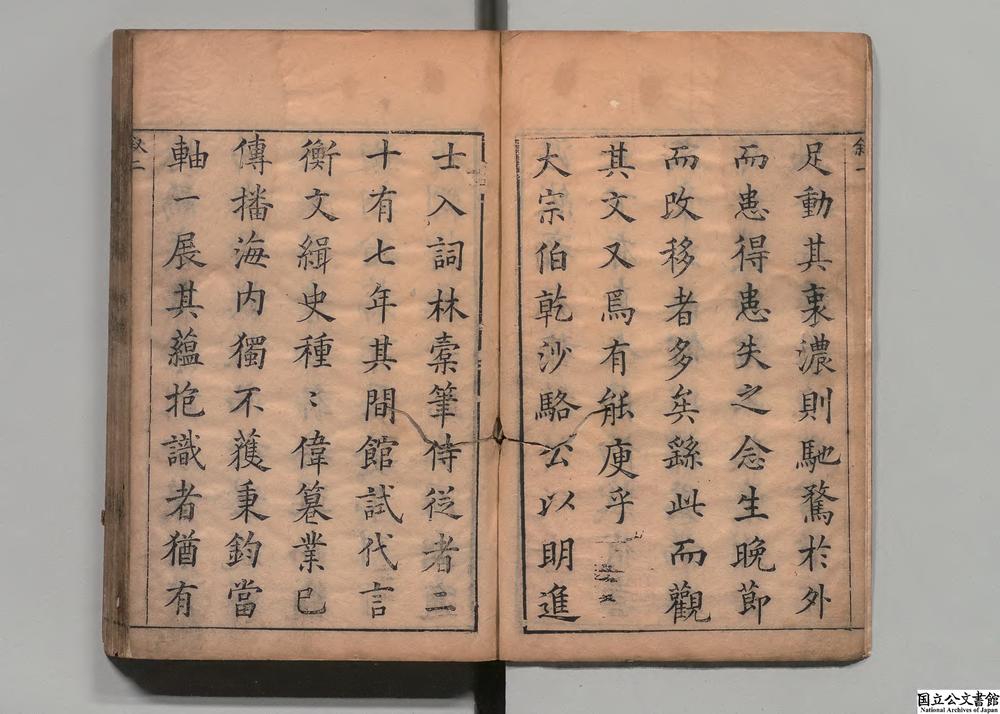 足動其衷濃則馳騖於外
而患得患失之念生晚節
而改移者多矣繇此而觀
其文又焉有能庾乎
大宗伯乾沙駱公以明進
士入詞林橐筆侍從者二
十有七年其間館試代言
衡文緝史種〻偉纂業已
傳播海內獨不獲秉鈞當
軸一展其蘊抱識者猶有
敘二
国立公文書館
National Archives of Japan